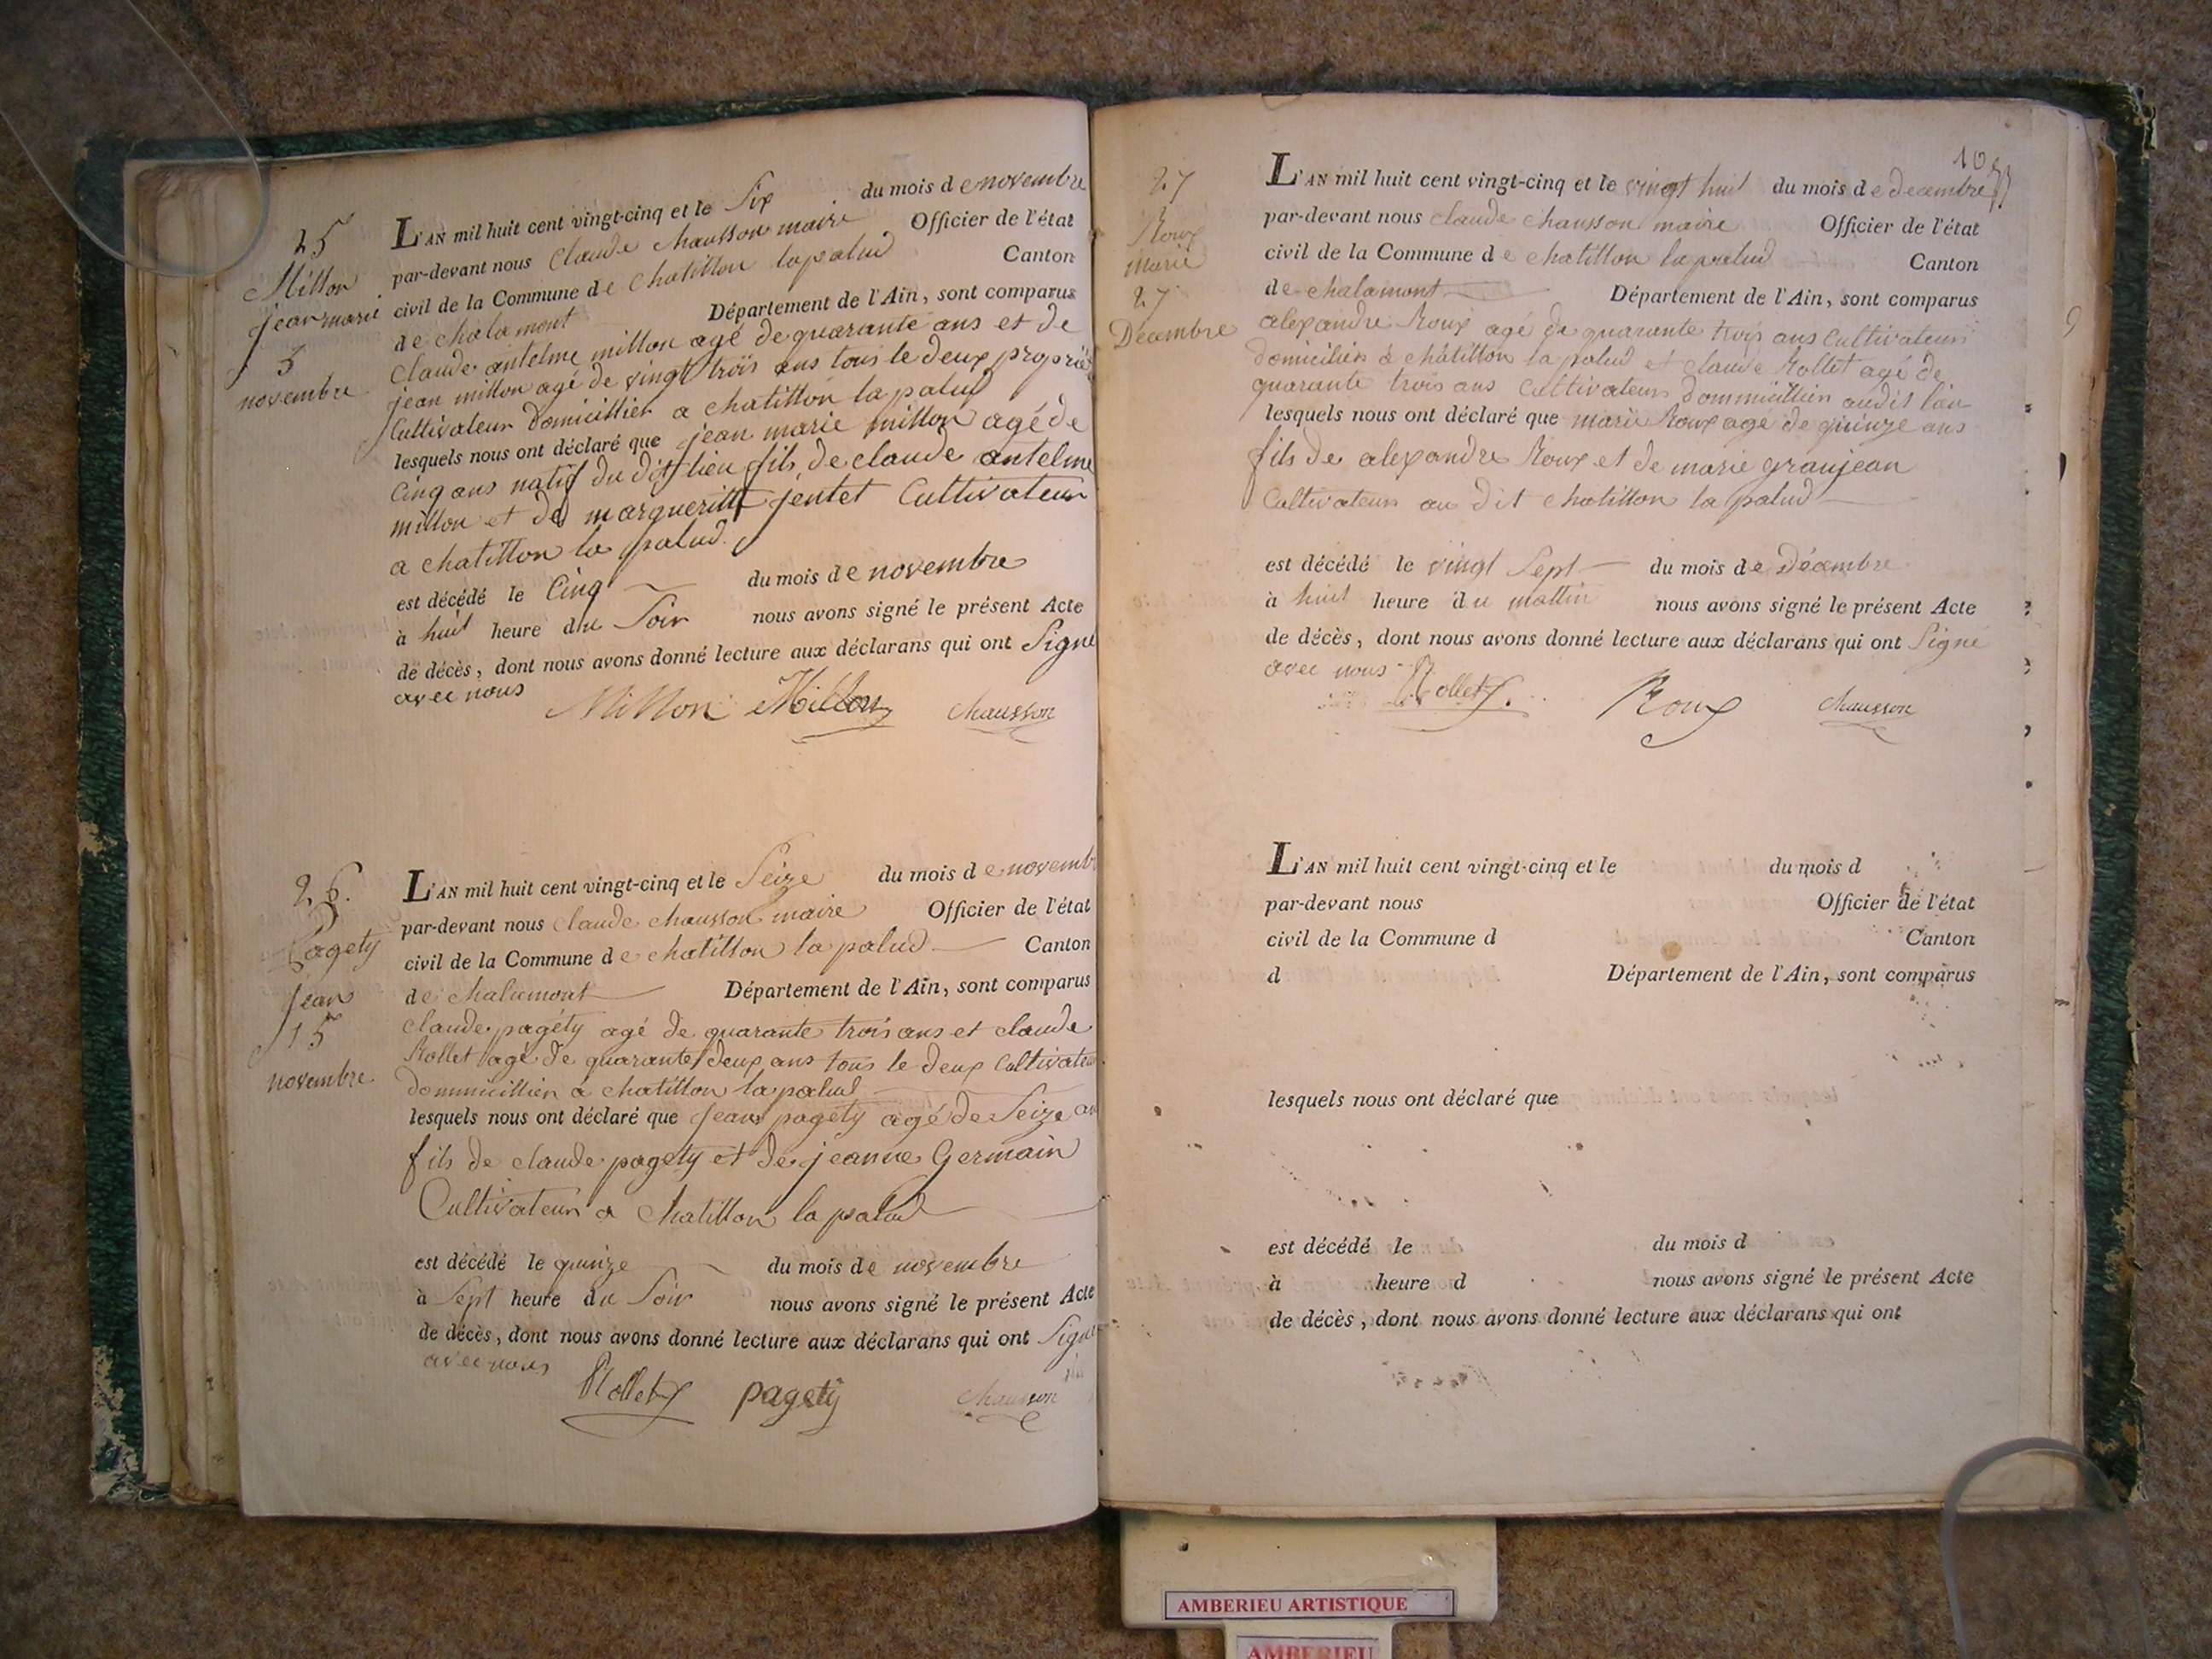 25
Millon
jean marie
5
novembre
L'AN mil huit cent vingt-cinq et le Six du mois de novembre
par-devant nous Claude chausson maire Officier de l'état
civil de la Commune de chatillon lapalud Canton
de chalamont Département de l'Ain, sont comparus
Claude antelme millon agé de quarante ans et de
jean millon agé de vingt trois ans tous le deux proprié
Cultivateur domicillier a chatillon la palud
lesquels nous ont déclaré que jean marie millon agé de
Cinq ans natif du dit lieu fils de claude antelme
millon et de margueritte jentet Cultivateur
a chatillon la palud.
est décédé le Cinq du mois de novembre
à huit heure du Soir nous avons signé le présent Acte
de décès, dont nous avons donné lecture aux déclarans qui ont Signé
avec nous
Millon Millon chausson
26.
Pagety
jean
15
novembre
L'AN mil huit cent vingt-cinq et le Seize du mois de novemb
par-devant nous claude chausson maire Officier de l'état
civil de la Commune de chatillon la palud Canton
de chalamont Département de l'Ain, sont comparus
claude pagéty agé de quarante trois ans et claude
Rollet agé de quarante deux ans tous le deux Cultivateu
dommicillier a chatillon la palud
lesquels nous ont déclaré que jean pagéty agé de Seize an
fils de claude pagety et de jeanne Germain
Cultivateur a chatillon la palud
est décédé le quinze du mois de novembre
à Sept heure du Soir nous avons signé le présent Acte
de décès, dont nous avons donné lecture aux déclarans qui ont Signé
avec nous
Rollet pagety chausson
105
27
Roux
Marie
27
Décembre
L'AN mil huit cent vingt-cinq et le vingt huit du mois de decembre
par-devant nous claude chausson maire Officier de l'état
civil de la Commune de chatillon la palud Canton
de chalamont Département de l'Ain, sont comparus
alexandre Roux agé de quarante trois ans Cultivateur
domicilier à châtillon la palud et claude Rollet agé de
quarante trois ans Cultivateur dommicillier audit lieu
lesquels nous ont déclaré que marie Roux agé de quinze ans
fils de alexandre Roux et de marie granjean
Cultivateur au dit chatillon la palud
est décédé le vingt Sept du mois de Décembre
à huit heure du mattin nous avons signé le présent Acte
de décès, dont nous avons donné lecture aux déclarans qui ont Signé
avec nous
Rollet Roux chausson
L'AN mil huit cent vingt-cinq et le du mois d
par-devant nous Officier de l'état
civil de la Commune d Canton
d Département de l'Ain, sont comparus
lesquels nous ont déclaré que
est décédé le du mois d
à heure d nous avons signé le présent Acte
de décès, dont nous avons donné lecture aux déclarans qui ont
AMBERIEU ARTISTIQUE
AMBERIEU